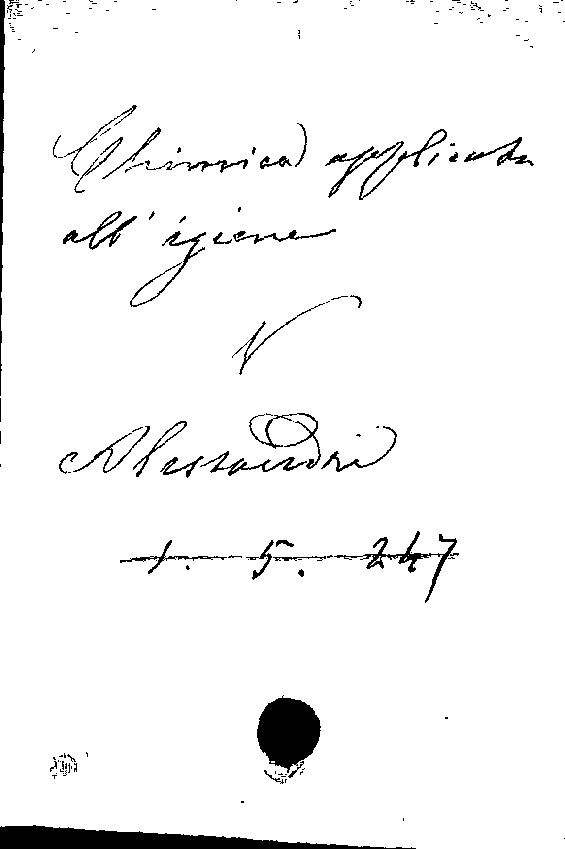 Chimica applicata
all' igiene
V
Alessandri
1. 5. 247